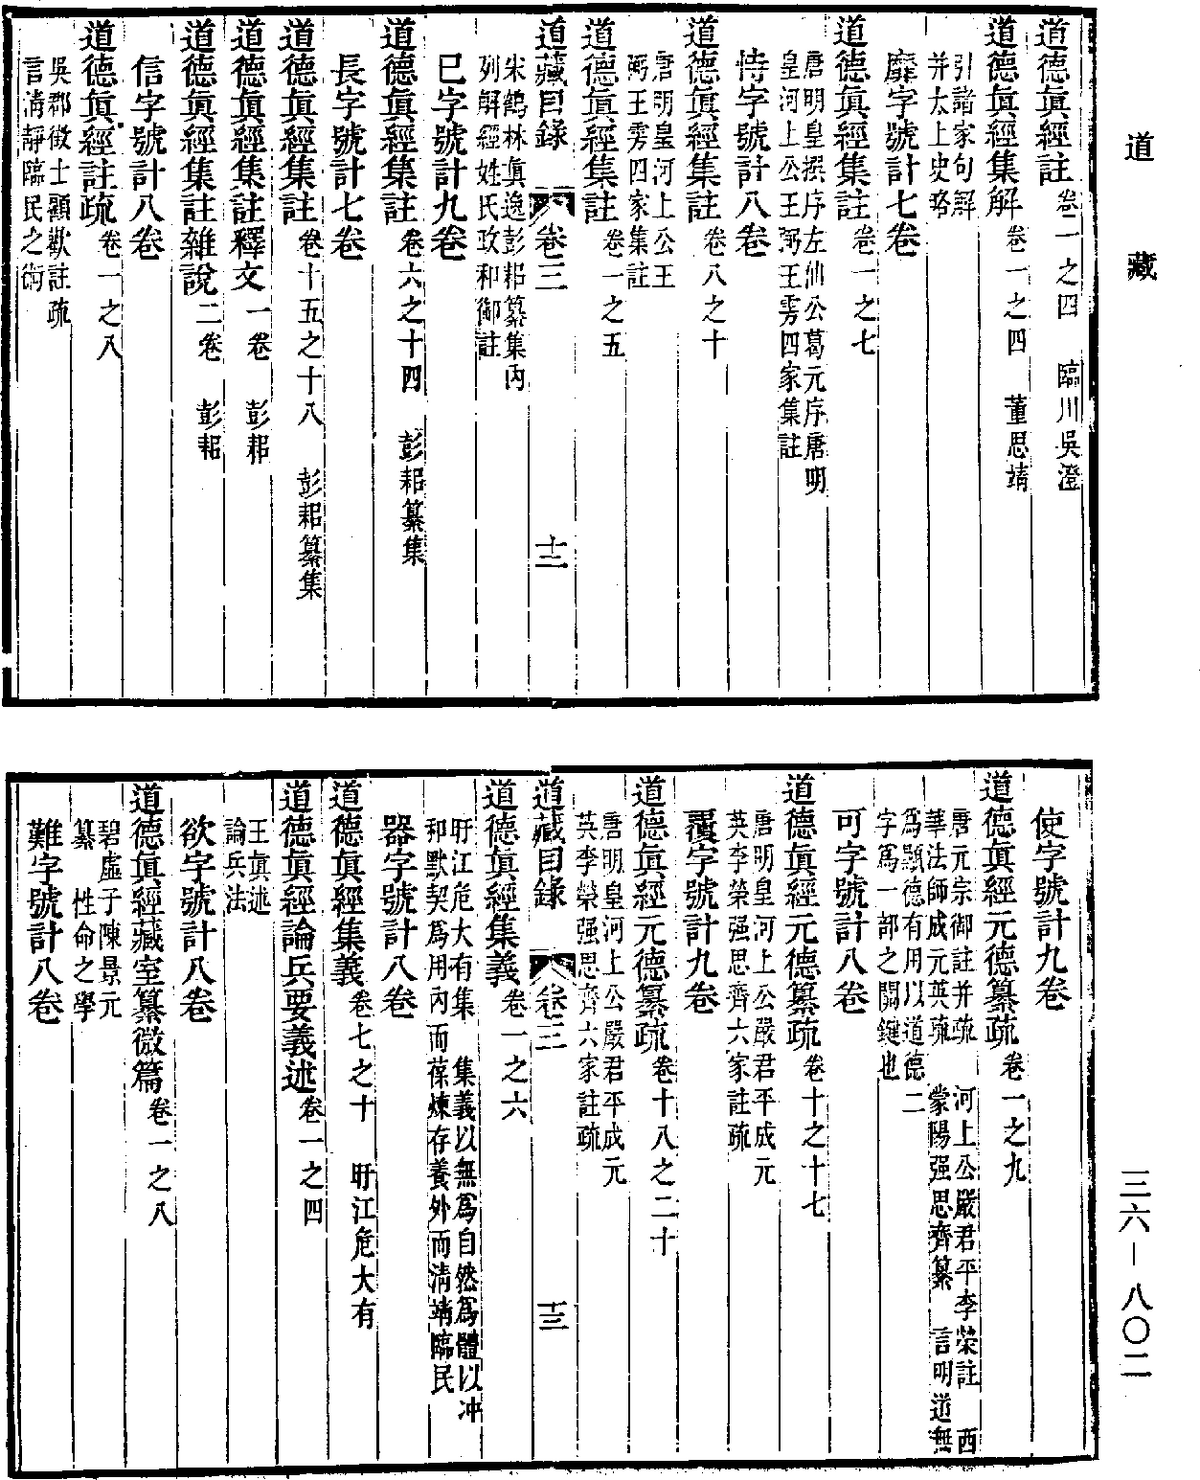 道藏
道德眞經註卷二之四 臨川吳澄
道德眞經集解卷一之四 董思靖
引諸家句解
并太上史略
靡字號計七卷
道德眞經集註卷一之七
唐明皇撰序左仙公葛元序唐明
皇河上公王弼王雱四家集註
恃字號計八卷
道德眞經集註卷八之十
唐明皇河上公王
弼王雱四家集註
道德眞經集註卷一之五
道藏目錄 卷三 十二
宋鶴林眞逸彭耜纂集內
列解經姓氏政和御註
已字號計九卷
道德眞經集註卷六之十四 彭耜纂集
長字號計七卷
道德眞經集註卷十五之十八 彭耜纂集
道德眞經集註釋文一卷 彭耜
道德眞經集註雜說二卷 彭耜
信字號計八卷
道德眞經註疏卷一之八
吳郡徵士顧歡註疏
言清靜臨民之術
使字號計九卷
道德眞經元德纂疏卷一之九
唐元宗御註并疏 河上公嚴君平李榮註 西
華法師成元英疏 濛陽强思齊纂 言明道無
爲顯德有用以道德二
字爲一部之關鍵也
可字號計八卷
道德眞經元德纂疏卷十之十七
唐明皇河上公嚴君平成元
英李榮强思齊六家註疏
覆字號計九卷
道德眞經元德纂疏卷十八之二十
唐明皇河上公嚴君平成元
英李榮强思齊六家註疏
道藏目錄 卷三 十三
道德眞經集義卷一之六
盱江危大有集 集義以無爲自然爲體以冲
和默契爲用內而葆煉存養外而清靖臨民
器字號計八卷
道德眞經集義卷七之十 盱江危大有
道德眞經論兵要義述卷一之四
王眞述
論兵法
欲字號計八卷
道德眞經藏室纂微篇卷一之八
碧虛子陳景元
纂 性命之學
難字號計八卷
三六－八〇二